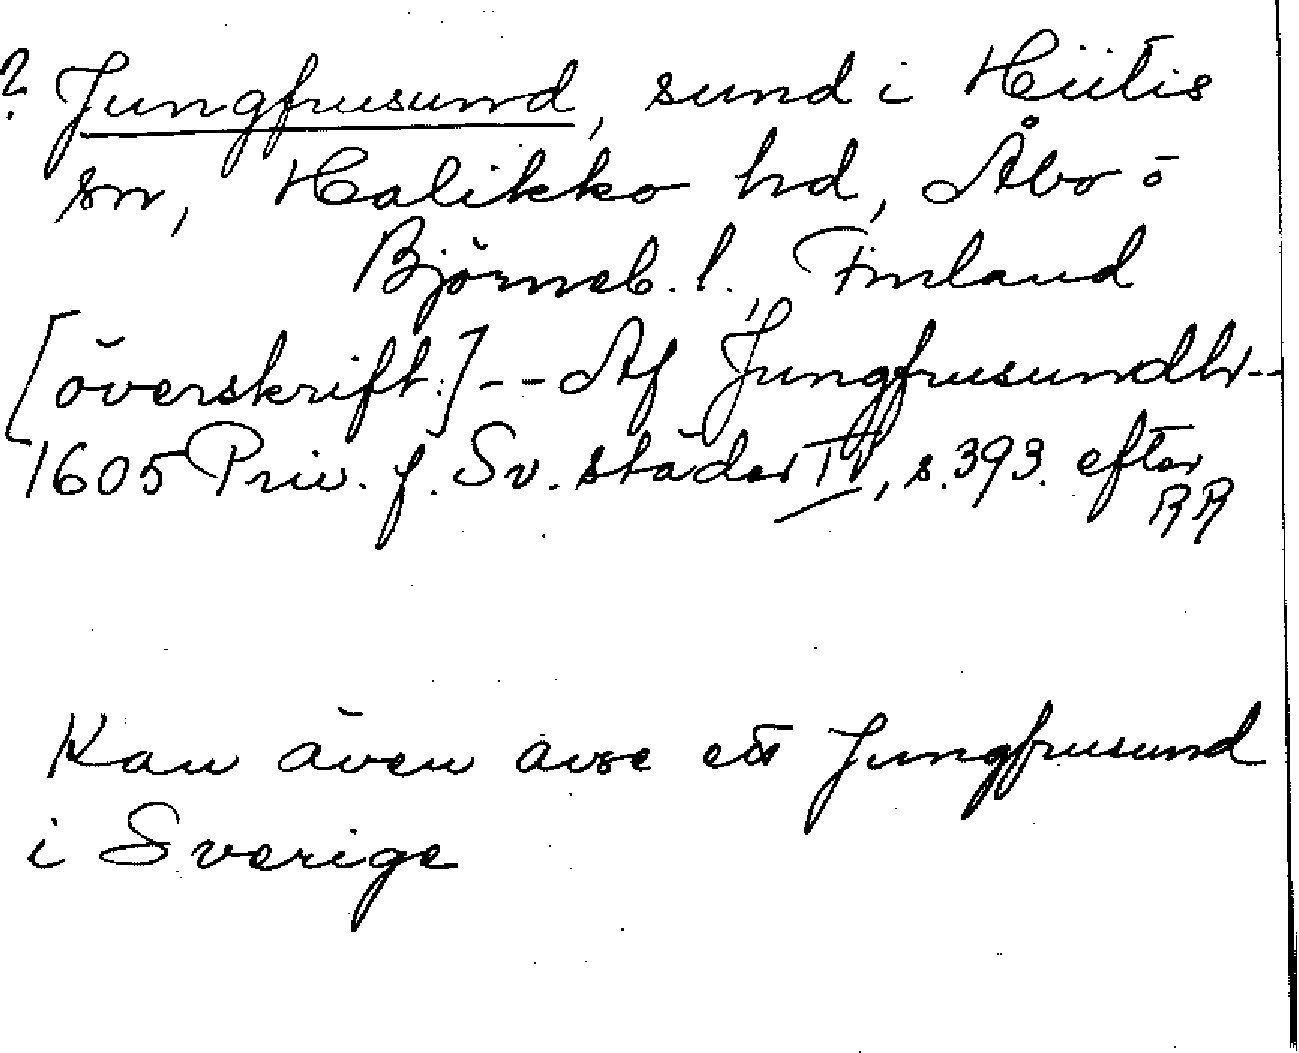 ? Jungfrusund, sund i Hiitis
sn, Halikko hd, Åbo o
Björneb. l., Finland
[överskrift:] -- Af Jungfrusundh --
1605 Priv. f. Sv. städer II, s. 393. efter
RR
Kan även avse ett Jungfrusund
i Sverige